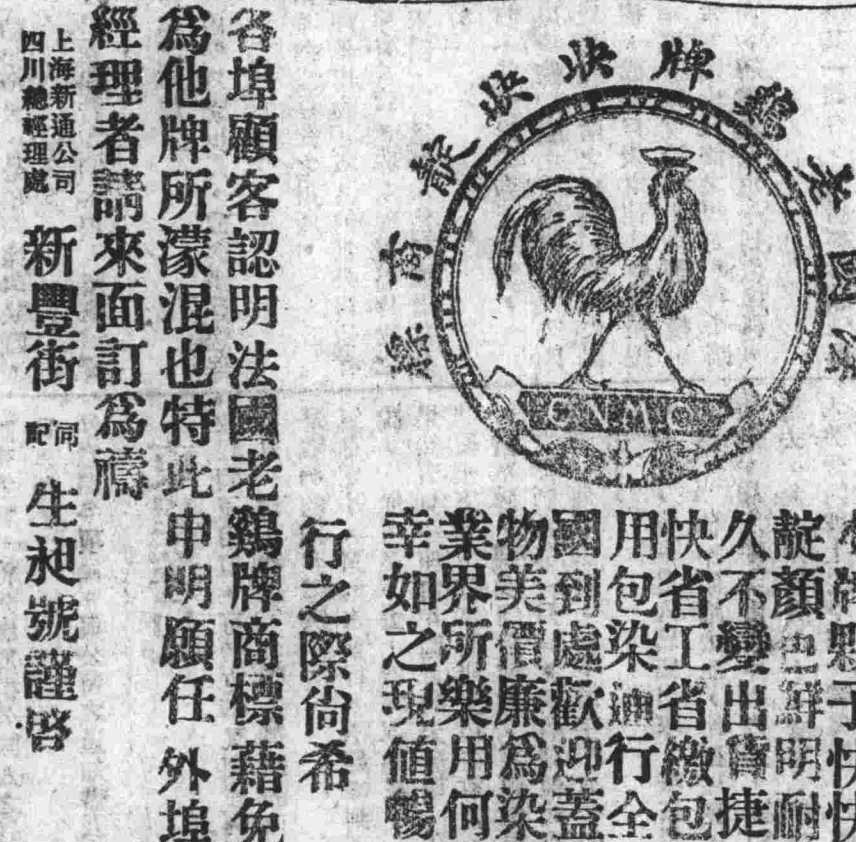 法國老鷄牌快快靛商標
C.N.M.C.
牌縣子快快
靛顏色鮮明耐
久不變出貨捷
快省工省繳包
用包染通行全
國到處歡迎蓋
物美價廉爲染
業界所樂用何
幸如之現值暢
行之際尙希
各埠顧客認明法國老鷄牌商標藉免
爲他牌所濛混也特此申明願任外埠
經理者請來面訂爲禱
上海新通公司
四川總經理處
新豐街
同記
生昶號謹啓